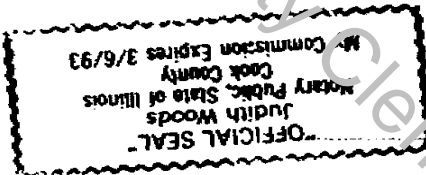 "OFFICIAL SEAL"
Judith Woods
Notary Public, State of Illinois
Cook County
My Commission Expires 3/6/93